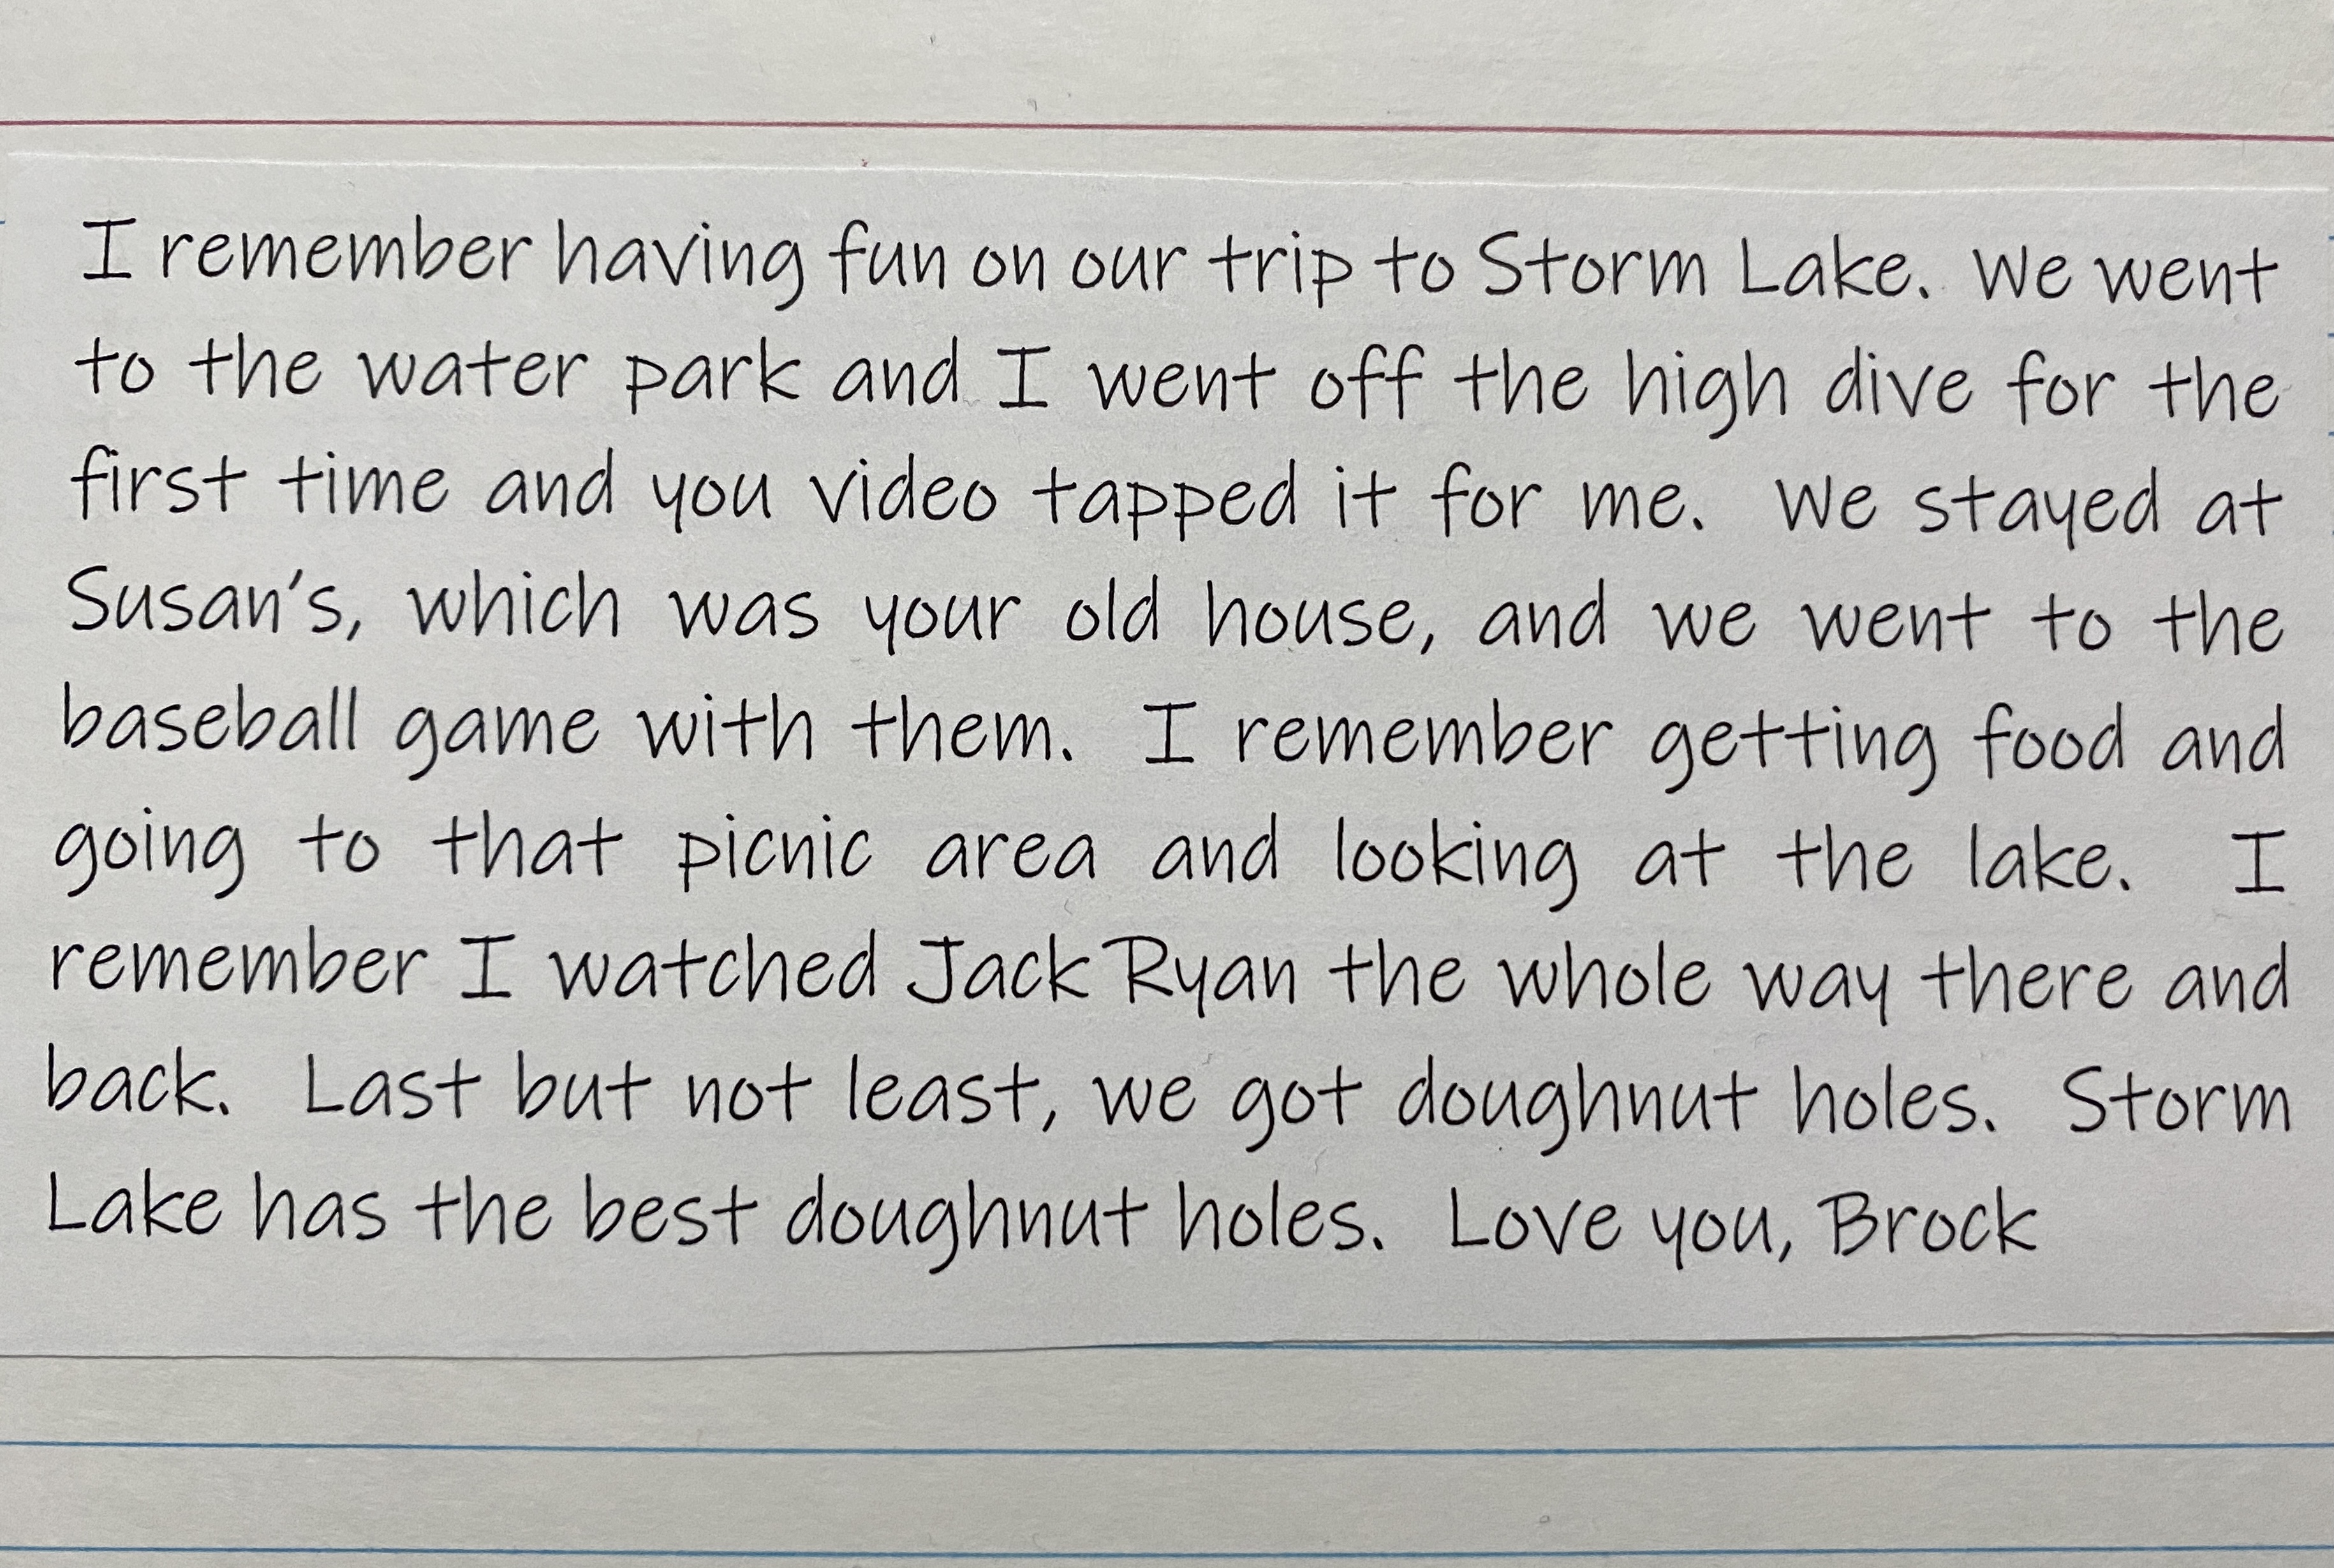 I remember having fun on our trip to Storm Lake. We went
to the water park and I went off the high dive for the
first time and you video tapped it for me. We stayed at
Susan's, which was your old house, and we went to the
baseball game with them. I remember getting food and
going to that picnic area and looking at the lake. I
remember I watched Jack Ryan the whole way there and
back. Last but not least, we got doughnut holes. Storm
Lake has the best doughnut holes. Love you, Brock